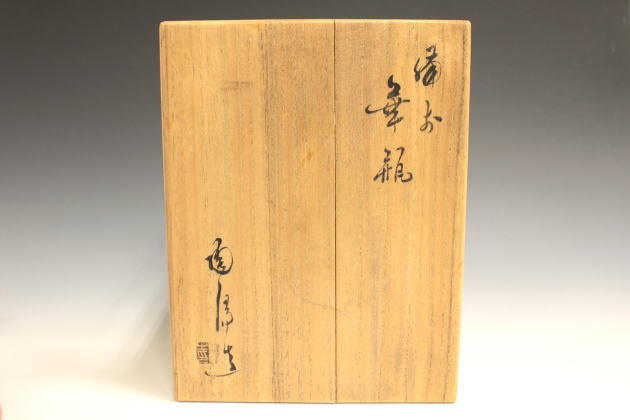 備前
華瓶
陶陽造